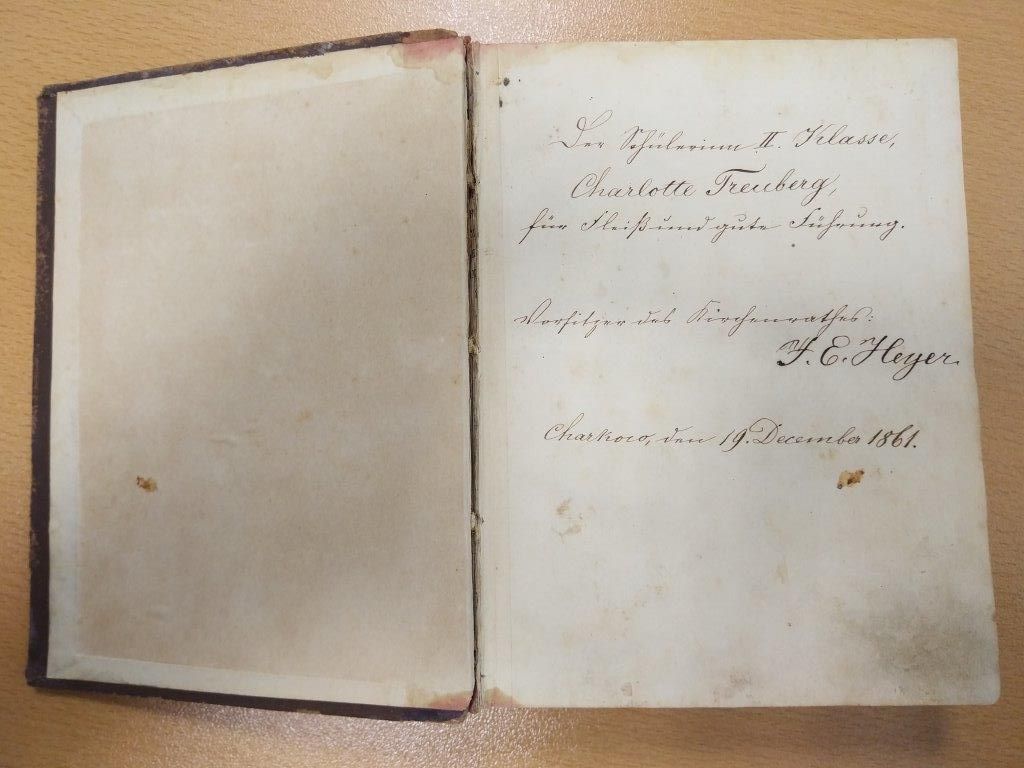 Der Schülerinn II. Klasse,
Charlotte Treuberg,
für Fleiß und gute Führung.
Vorsitzer des Kirchenrathes:
F. E. Heyer.
Charkow, den 19. December 1861.